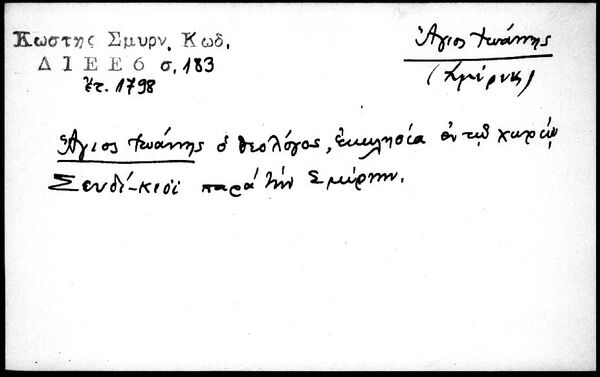 Κωστης Σμυρν. Κωδ.
Δ Ι Ε Ε 6 σ. 183
ἔτ. 1798
Ἅγιος Ἰωάννης
(Σμύρνης)
Ἅγιος Ἰωάννης ὁ Θεολόγος, ἐκκλησία ἐν τῷ χωρίῳ
Σευδί-κιοϊ παρά τήν Σμύρνην.